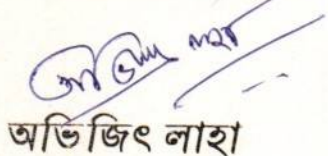 অভিজিৎ লাহা
অভিজিৎ লাহা